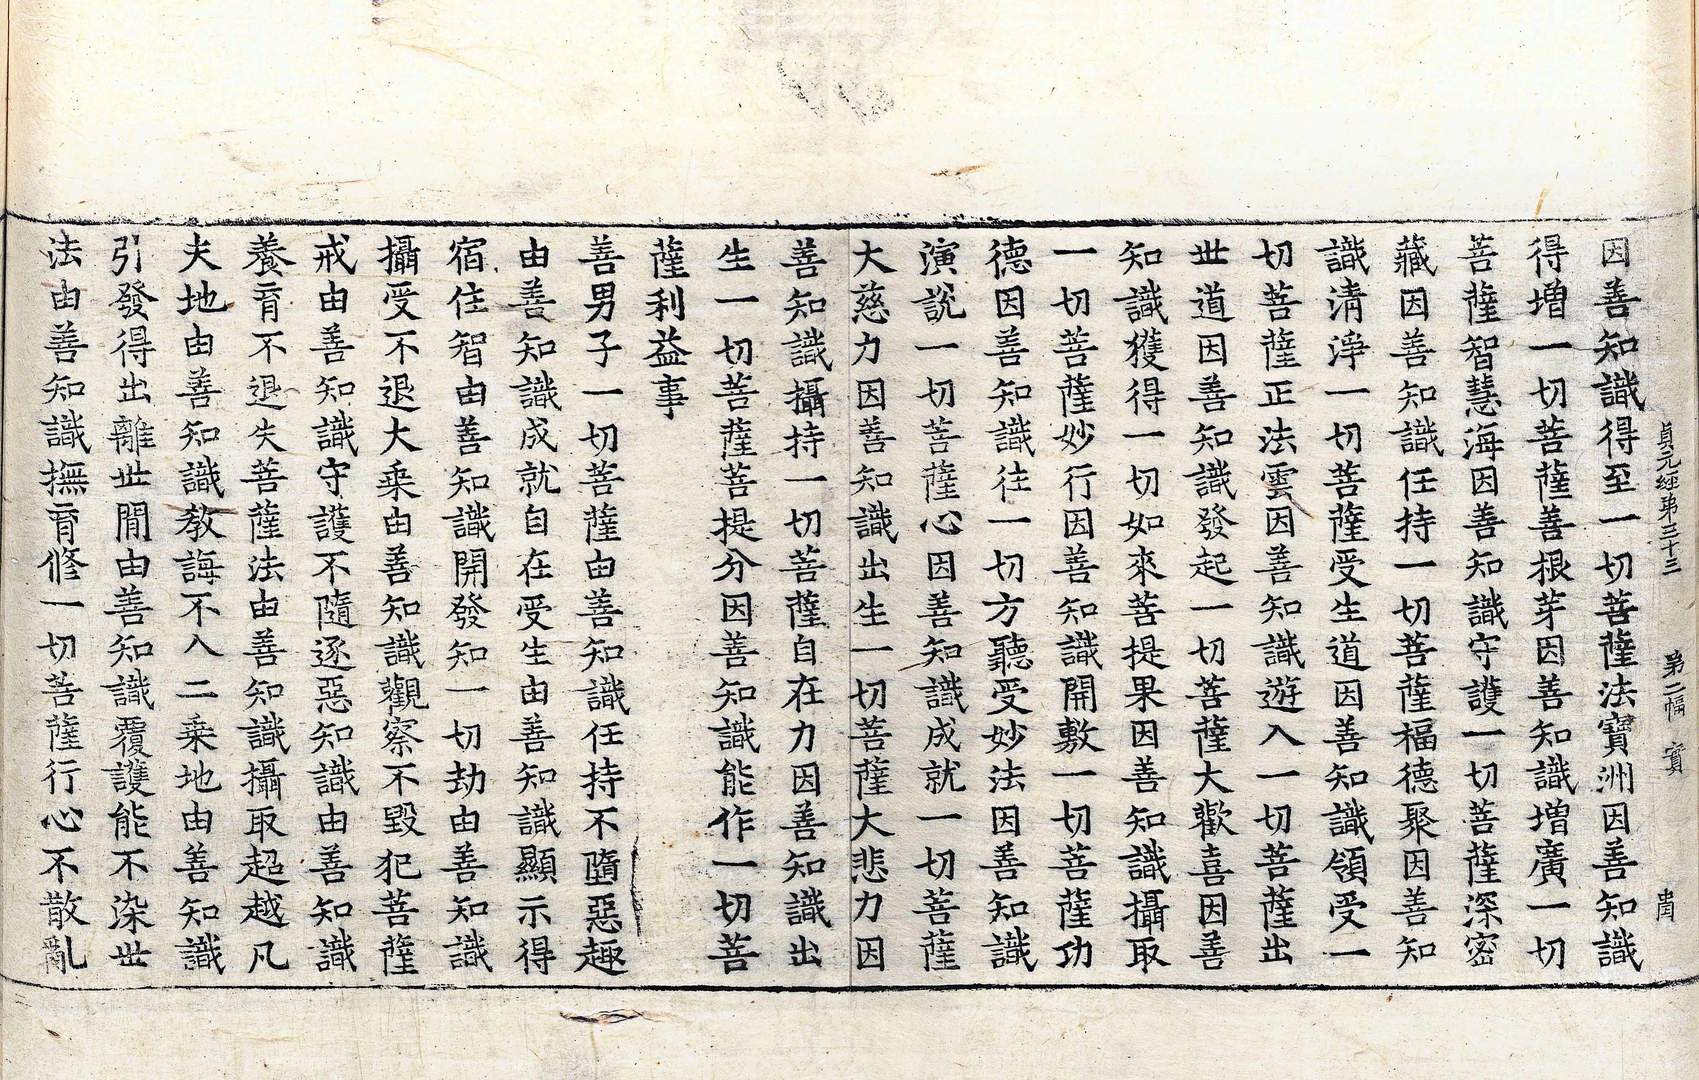 貞元經第三十三　第二幅　實
因善知識得至一切菩薩法寶洲因善知識
得增一切菩薩善根芽因善知識增廣一切
菩薩智慧海因善知識守護一切菩薩深密
藏因善知識任持一切菩薩福德聚因善知
識清淨一切菩薩受生道因善知識領受一
切菩薩正法雲因善知識遊入一切菩薩出
世道因善知識發起一切菩薩大歡喜因善
知識獲得一切如來菩提果因善知識攝取
一切菩薩妙行因善知識開敷一切菩薩功
德因善知識往一切方聽受妙法因善知識
演說一切菩薩心因善知識成就一切菩薩
大慈力因善知識出生一切菩薩大悲力因
善知識攝持一切菩薩自在力因善知識出
生一切菩薩菩提分因善知識能作一切菩
薩利益事
善男子一切菩薩由善知識任持不墮惡趣
由善知識成就自在受生由善知識顯示得
宿住智由善知識開發知一切劫由善知識
攝受不退大乘由善知識觀察不毀犯菩薩
戒由善知識守護不隨逐惡知識由善知識
養育不退失菩薩法由善知識攝取超越凡
夫地由善知識教誨不入二乘地由善知識
引發得出離世間由善知識覆護能不染世
法由善知識撫育修一切菩薩行心不散亂